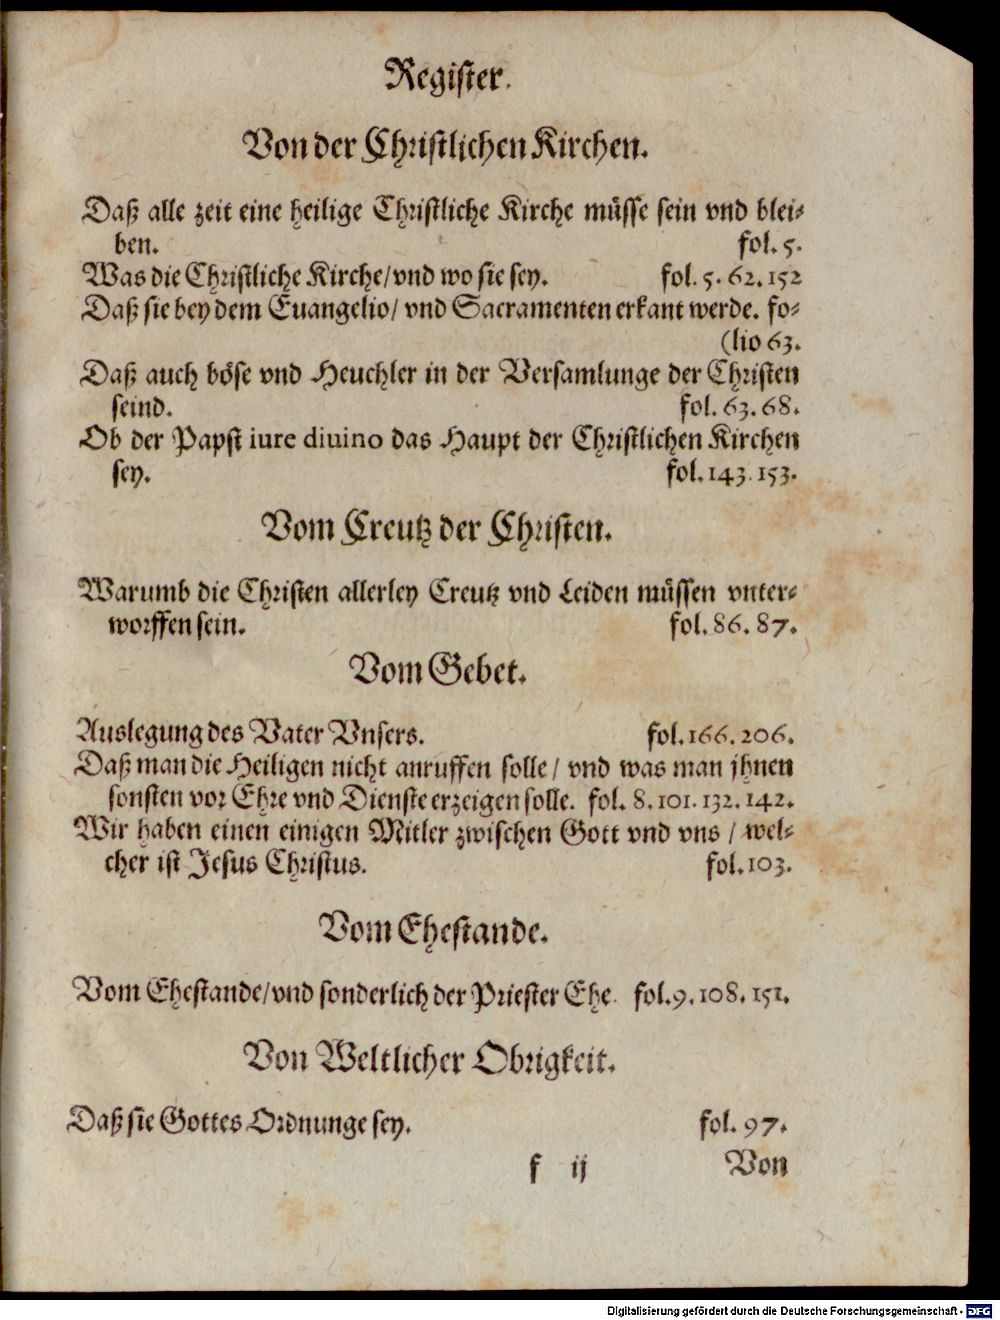 Register.
Von der Christlichen Kirchen.
Daß alle zeit eine heilige Christliche Kirche müsse sein vnd blei-
ben. fol. 5.
Was die Christliche Kirche/vnd wo sie sey. fol. 5. 62. 152
Daß sie bey dem Euangelio/ vnd Sacramenten erkant werde. fo-
(lio 63.
Daß auch böse vnd Heuchler in der Versamlunge der Christen
seind. fol. 63. 68.
Ob der Papst iure diuino das Haupt der Christlichen Kirchen
sey. fol. 143. 153.
Vom Creutz der Christen.
Warumb die Christen allerley Creutz vnd Leiden müssen vnter-
worffen sein. fol. 86. 87.
Vom Gebet.
Auslegung des Vater Vnsers. fol. 166. 206.
Daß man die Heiligen nicht anruffen solle / vnd was man jhnen
sonsten vor Ehre vnd Dienste erzeigen solle. fol. 8. 101. 132. 142.
Wir haben einen einigen Mitler zwischen Gott vnd vns / wel-
cher ist Jesus Christus. fol. 103.
Vom Ehestande.
Vom Ehestande/vnd sonderlich der Priester Ehe. fol. 9. 108. 151.
Von Weltlicher Obrigkeit.
Daß sie Gottes Ordnunge sey. fol. 97.
f ij Von
Digitalisierung gefördert durch die Deutsche Forschungsgemeinschaft - DFG